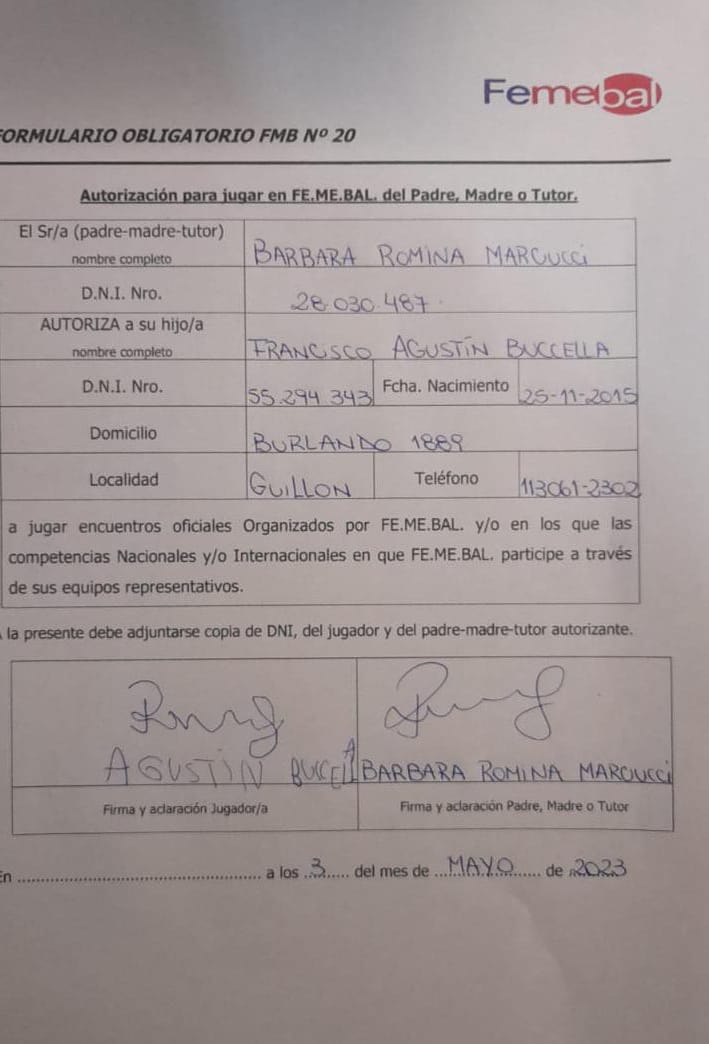 Femebal
FORMULARIO OBLIGATORIO FMB Nº 20
Autorización para jugar en FE.ME.BAL. del Padre, Madre o Tutor.
El Sr/a (padre-madre-tutor)
nombre completo
BARBARA ROMINA MARCUCCI
D.N.I. Nro.
28.030.487.
AUTORIZA a su hijo/a
nombre completo
FRANCISCO AGUSTÍN BUCCELLA
D.N.I. Nro.
55.294.343
Fcha. Nacimiento
25-11-2015
Domicilio
BURLANDO 1889
Localidad
GUILLON
Teléfono
113061-2302
a jugar encuentros oficiales Organizados por FE.ME.BAL. y/o en los que las
competencias Nacionales y/o Internacionales en que FE.ME.BAL. participe a través
de sus equipos representativos.
la presente debe adjuntarse copia de DNI, del jugador y del padre-madre-tutor autorizante.
AGUSTÍN
BARBARA ROMINA MARCUCCI
Firma y aclaración Jugador/a
Firma y aclaración Padre, Madre o Tutor
En ............................................ a los 3 ..... del mes de ...MAYO...... de 2023